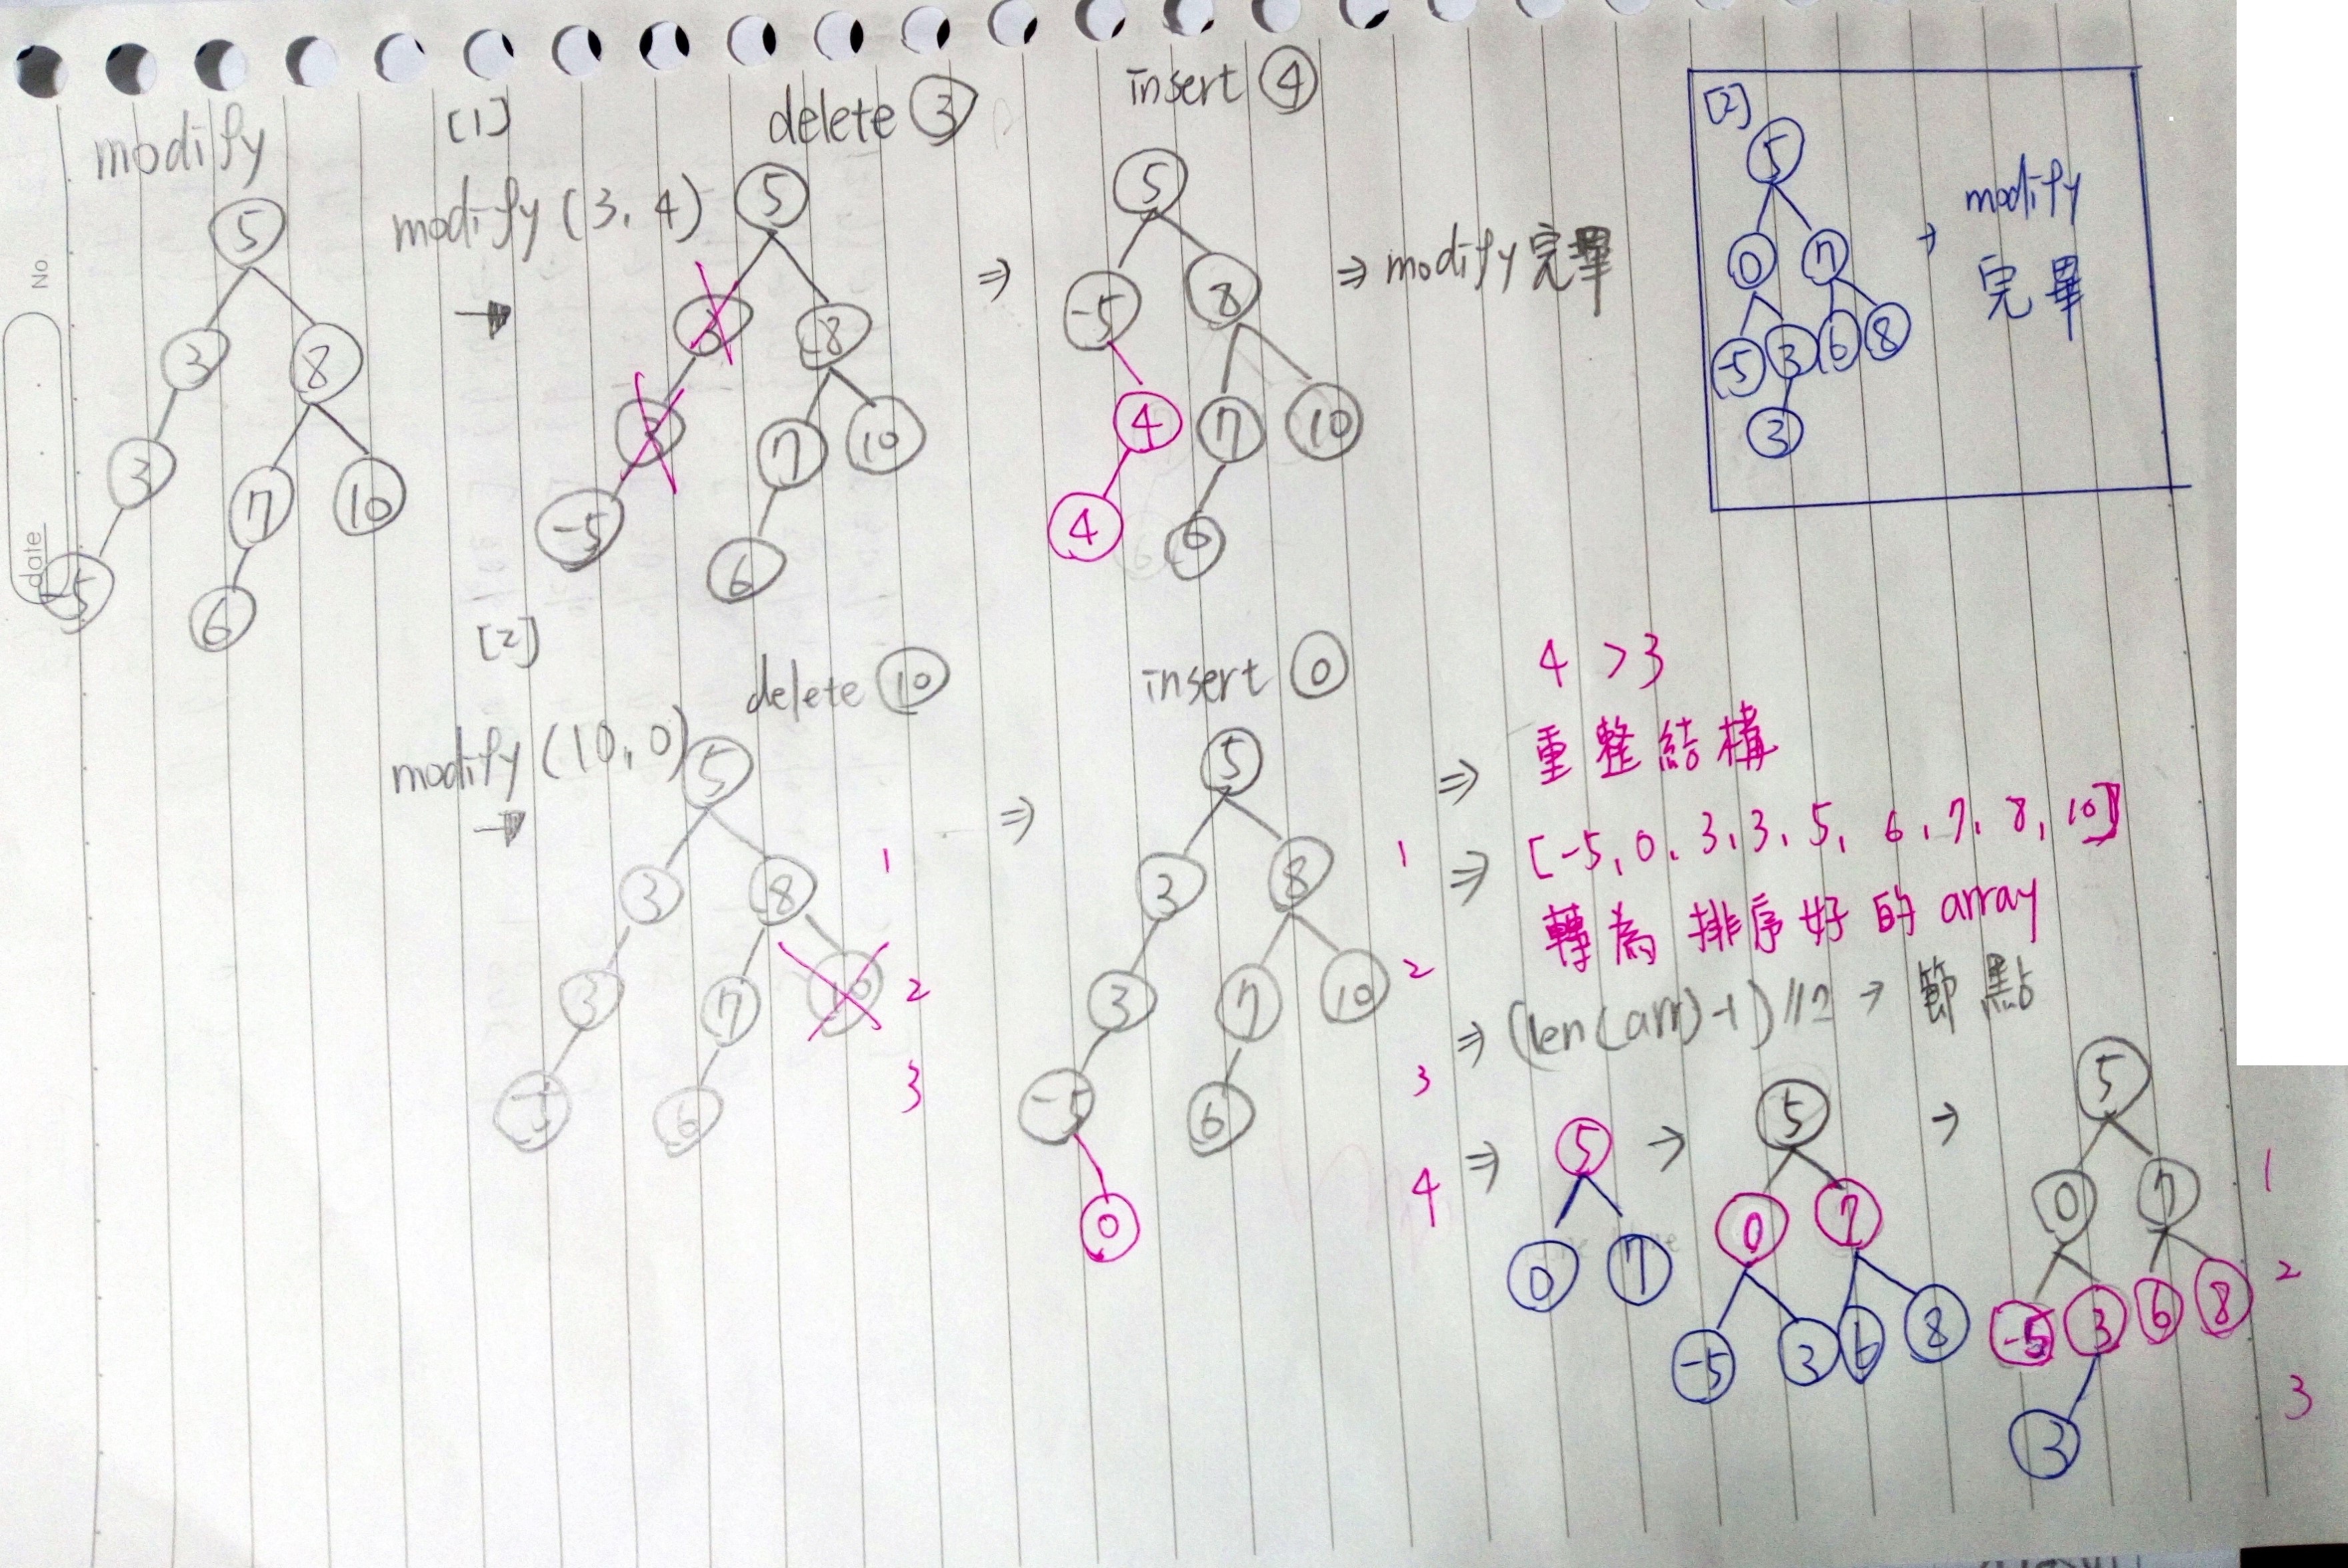 No
date
modify
5
3 8
3 7 10
-5 6
[1]
modify (3, 4)
→
delete ③
5
3 8
3 7 10
-5 6
⇒
insert ④
5
-5 8
4 7 10
4 6
⇒ modify 完畢
[2]
5
0 7
-5 3 6 8
3
→ modify
完畢
[2]
modify (10, 0)
→
delete ⑩
5
3 8 1
3 7 10 2
-5 6 3
⇒
insert ⓪
5
3 8 1
3 7 10 2
-5 6 3
0 4
4 > 3
⇒ 重整結構
⇒ [-5, 0, 3, 3, 5, 6, 7, 8, 10]
轉為排序好的 array
⇒ (len(arr)-1)//2 → 節點
⇒
5
0 7
→
5
0 7
-5 3 6 8
→
5
0 7 1
-5 3 6 8 2
3 3